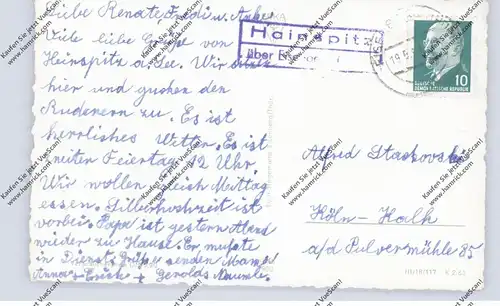 Liebe Renate, Fredi u. Anke
Viele liebe Grüße von
Hainspitz a. See. Wir
hier und gucken den
Ruderern zu. Es ist
herrliches Wetter. Es ist
zweiten Feiertag 12 Uhr
Wir wollen gleich Mittag
essen. Silberhochzeit ist
vorbei. Papa ist gestern Abend
wieder zu Hause. Er mußte
in Dienst. Grüße senden Mama
Anna + Erich + Gerolds
Hainspitz
über
19.5.
DEUTSCHE
DEMOKRATISCHE REPUBLIK
10
Alfred
Köln-Kalk
a/d Pulvermühle 85
III/18/117 K 2 63
Kaufen Sie jetzt VueScan!
www.hamrick.com